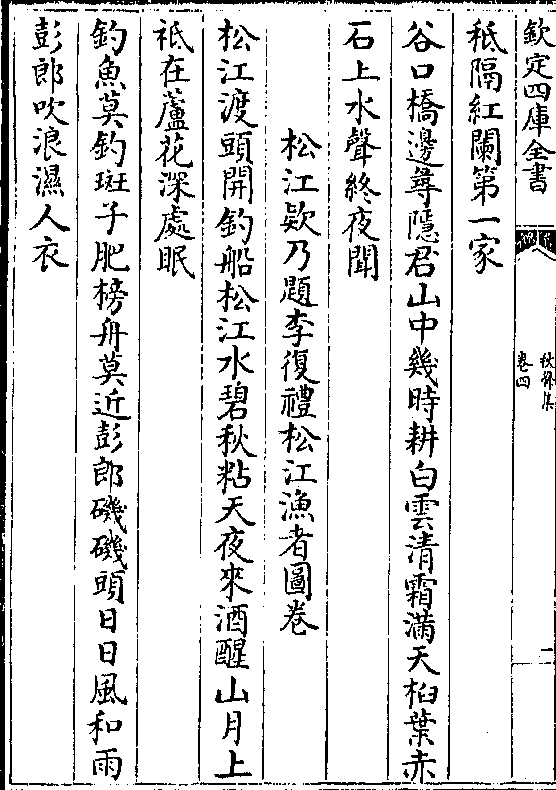 欽定四庫全書
卷四
二
秪隔紅闌第一家
谷口橋邊尋隱君山中幾時耕白雲清霜滿天桕葉赤
石上水聲終夜聞
松江欵乃題李復禮松江漁者圖卷
松江渡頭開釣船松江水碧秋粘天夜來酒醒山月上
秪在蘆花深處眠
釣魚莫釣斑子肥榜舟莫近彭郎磯磯頭日日風和雨
彭郎吹浪濕人衣